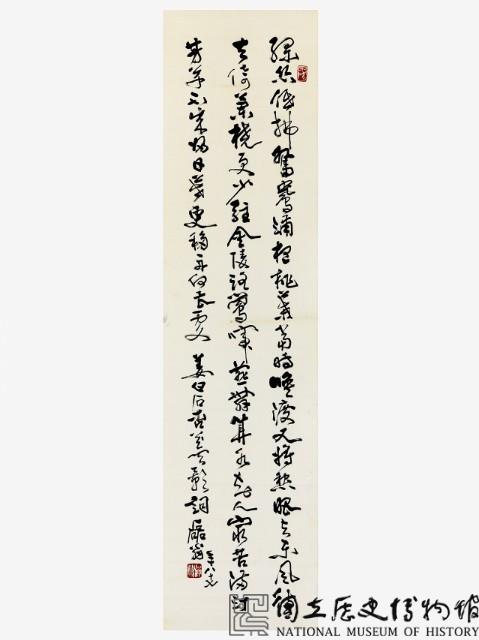 綠絲低拂鴛鴦浦想桃葉當時喚渡又將愁眼與東風待
去倚蘭橈更少駐金陵路鶯啼燕舞算潮水知人最苦滿汀
芳草不成歸日暮更移舟向甚處 姜白石杏花天影詞
國立歷史博物館
NATIONAL MUSEUM OF HISTORY